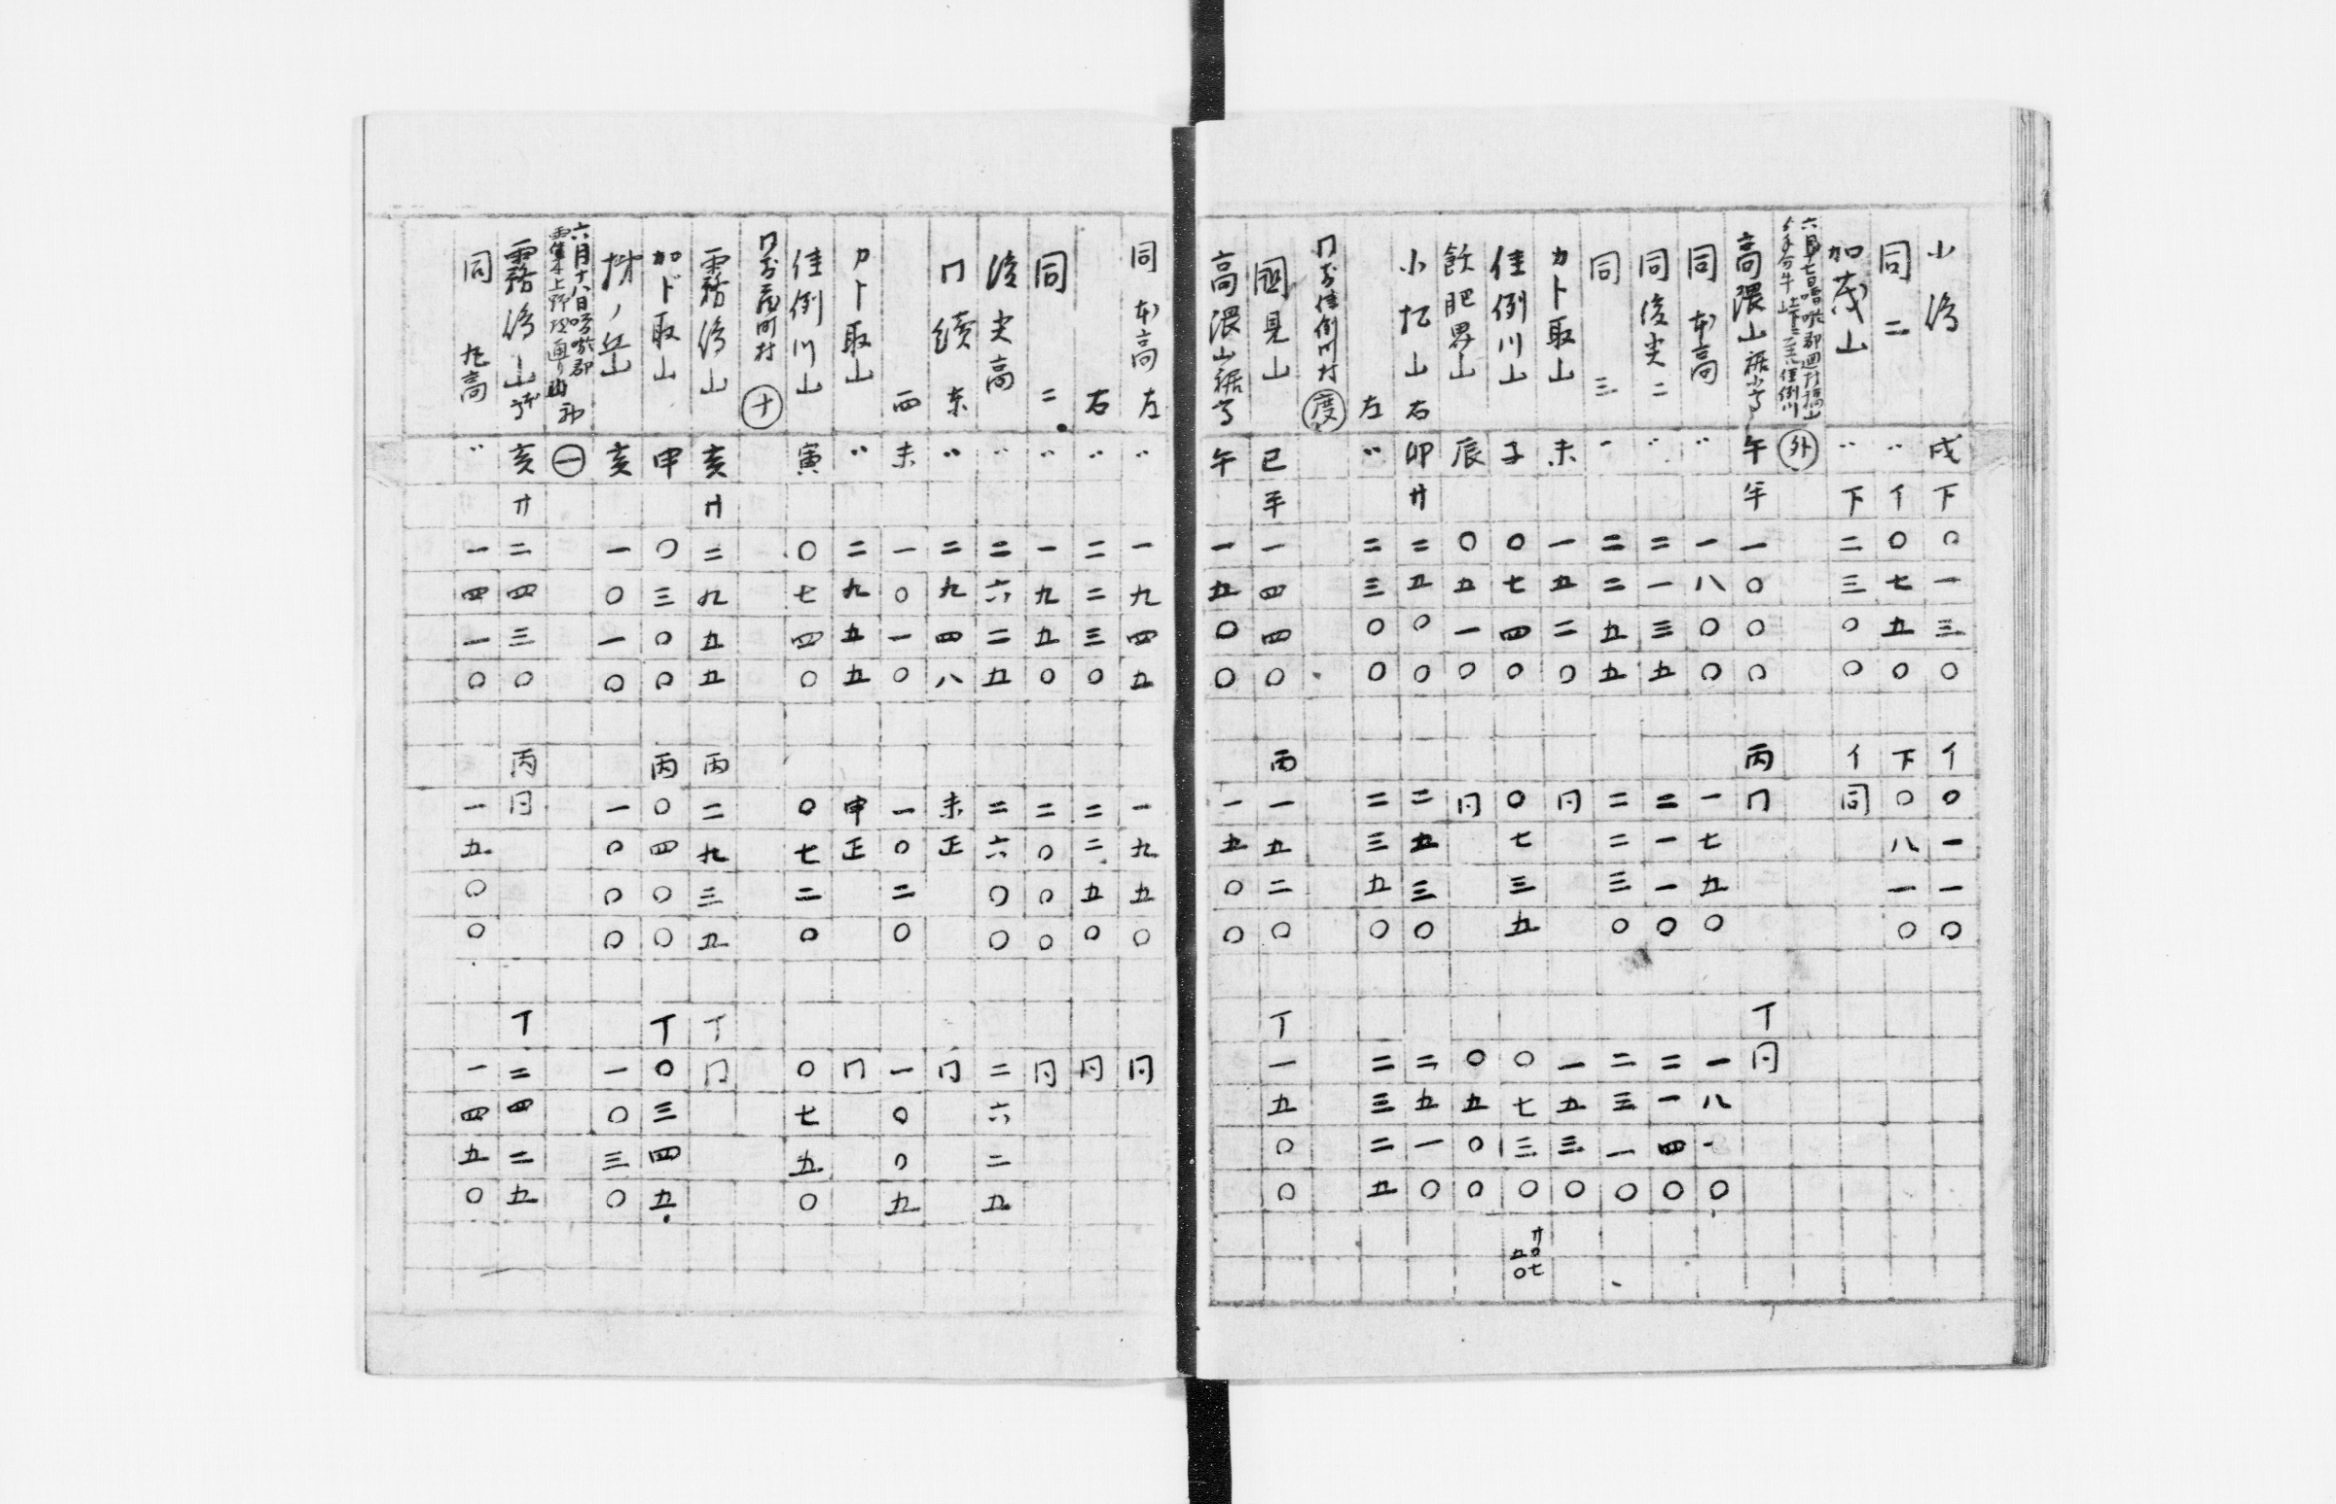 小島 戌 下 〇 一 三 〇 イ 〇 一 一 〇
同 二 〃 イ 〇 七 五 〇 下 〇 八 一 〇
加茂山 〃 下 二 三 〇 〇 イ 同
六月十七日 囎唹郡廻村 福山 外
佳例川
高隈山裾小高 午 午 一 〇 〇 〇 丙 冂 丁 同
同 本高 〃 一 八 〇 〇 一 七 五 〇 一 八 一 〇
同 後尖 二 〃 二 一 三 五 二 一 一 〇 二 一 四 〇
同 三 〃 二 二 五 五 二 二 三 〇 二 三 一 〇
カト取山 未 一 五 二 〇 同 一 五 三 〇
佳例川山 子 〇 七 四 〇 〇 七 三 五 〇 七 三 〇
飫肥界山 辰 〇 五 一 〇 同 〇 五 〇 〇
小松山 右 卯 廾 二 五 〇 〇 二 五 三 〇 二 五 一 〇
左 〃 二 三 〇 〇 二 三 五 〇 二 三 二 五
冂 佳例川村 度
国見山 巳 平 一 四 四 〇 丙 一 五 二 〇 丁 一 五 〇 〇
高隈山裾高 午 一 五 〇 〇 一 五 〇 〇
同 本高 左 〃 一 九 四 五 一 九 五 〇 同
右 〃 二 二 三 〇 二 二 五 〇 同
同 二 〃 一 九 五 〇 二 〇 〇 〇 同
後尖高 〃 二 六 二 五 二 六 〇 〇 二 六 二 五
冂 続 東 〃 二 九 四 八 未 正 冂
西 未 一 〇 一 〇 一 〇 二 〇 一 〇 〇 五
カト取山 〃 二 九 五 五 申 正 冂
佳例川山 寅 〇 七 四 〇 〇 七 二 〇 〇 七 五 〇
町村 十
霧島山 亥 廾 二 九 五 五 丙 二 九 三 五 丁 冂
加ト取山 申 〇 三 〇 〇 丙 〇 四 〇 〇 丁 〇 三 四 五
ノ岳 亥 一 〇 一 〇 一 〇 〇 〇 一 〇 三 〇
六月十八日 囎唹郡 一
上野
霧島山 亥 廾 二 四 三 〇 丙 同 丁 二 四 二 五
同 九高 〃 一 四 一 〇 一 五 〇 〇 一 四 五 〇